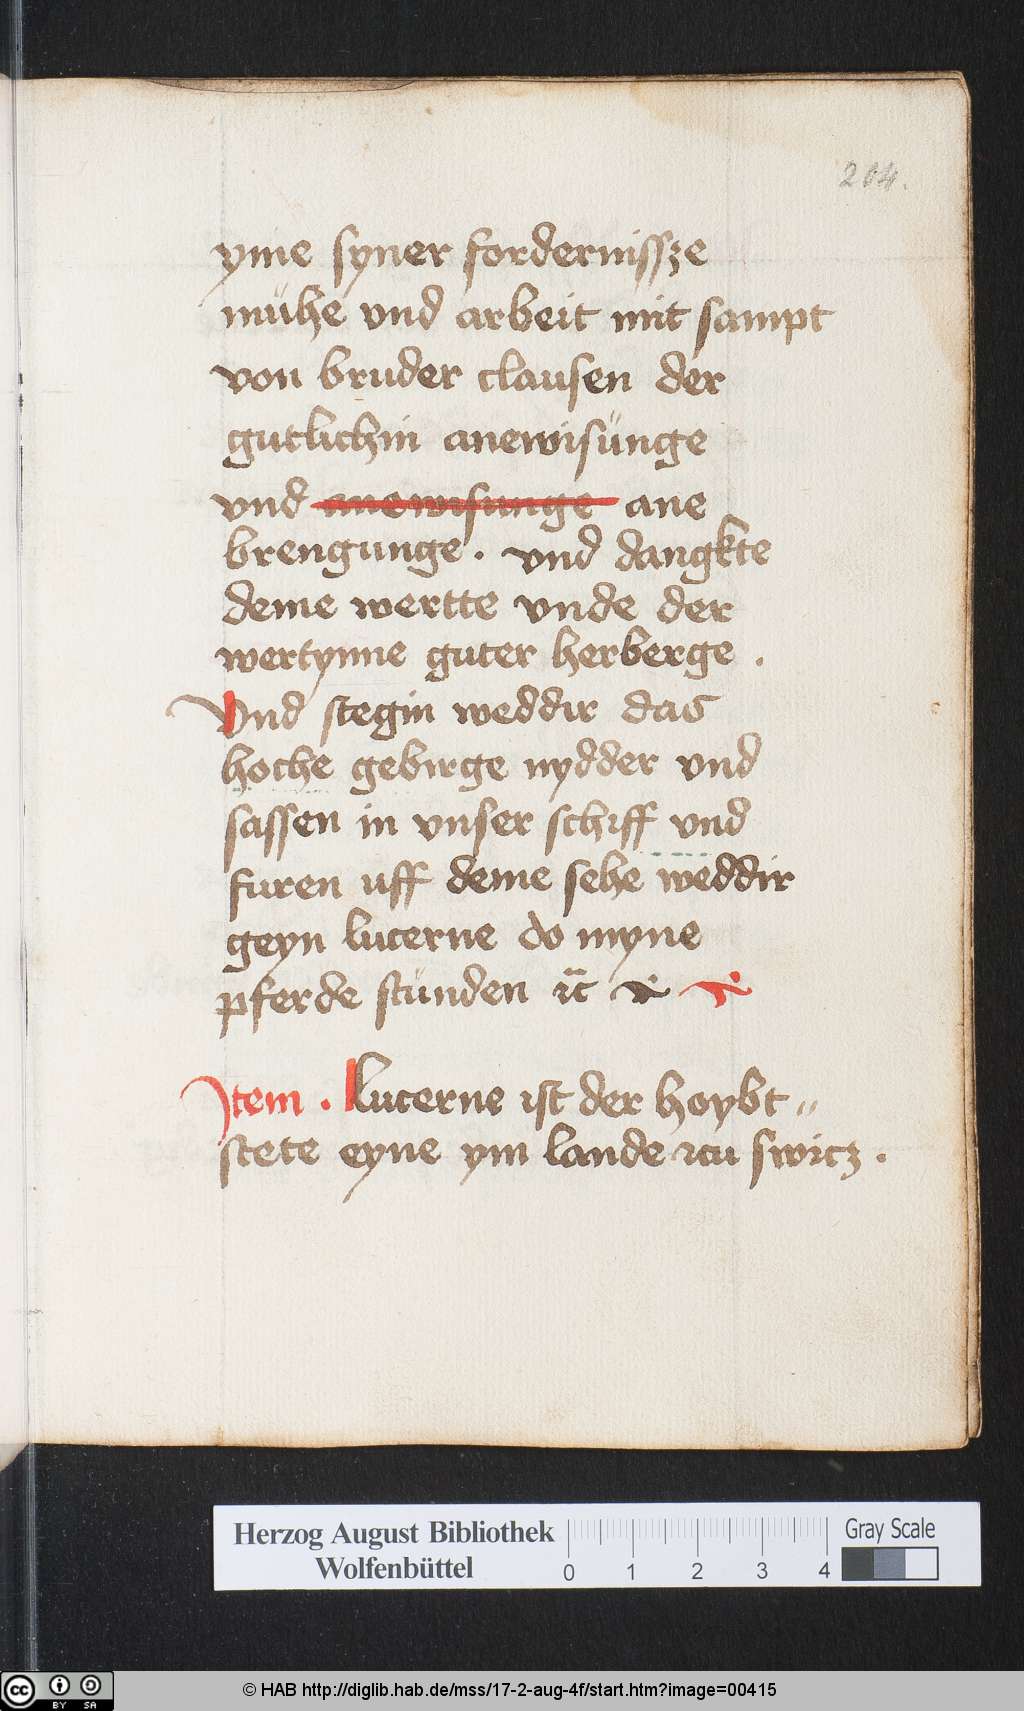 204.
yme syner fordernissze
mühe vnd arbeit mit sampt
von bruder clausen der
gutlichin anewisünge
vnd anewisunge ane
brengunge . vnd dangkte
deme wertte vnde der
wertynne guter herberge .
Vnd stegin weddir das
hoche gebirge nydder vnd
sassen in vnser schiff vnd
furen uff deme sehe weddir
geyn lucerne do myne
pferde stünden
Item . Lucerne ist der hoybt〃
stete eyne ym lande zcu switz .
Herzog August Bibliothek
Wolfenbüttel
0 1 2 3 4
Gray Scale
cc BY SA
© HAB http://diglib.hab.de/mss/17-2-aug-4f/start.htm?image=00415